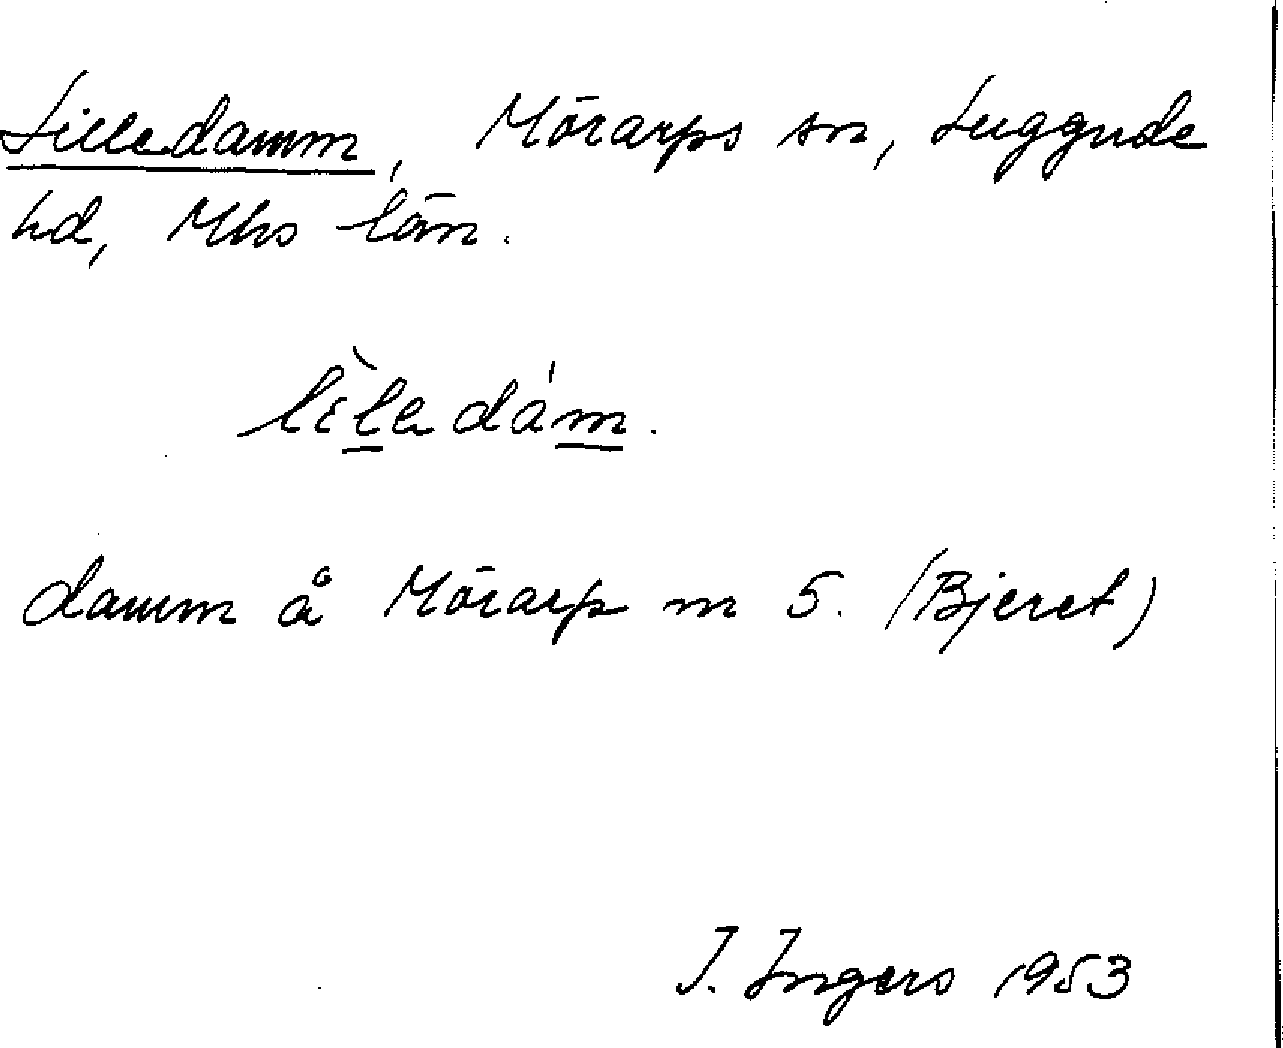 Lilledamm, Mörarps sn, Luggude
hd, Mhs län.
lìlladám.
damm å Mörarp nr 5. (Bjeret)
I. Ingers 1953